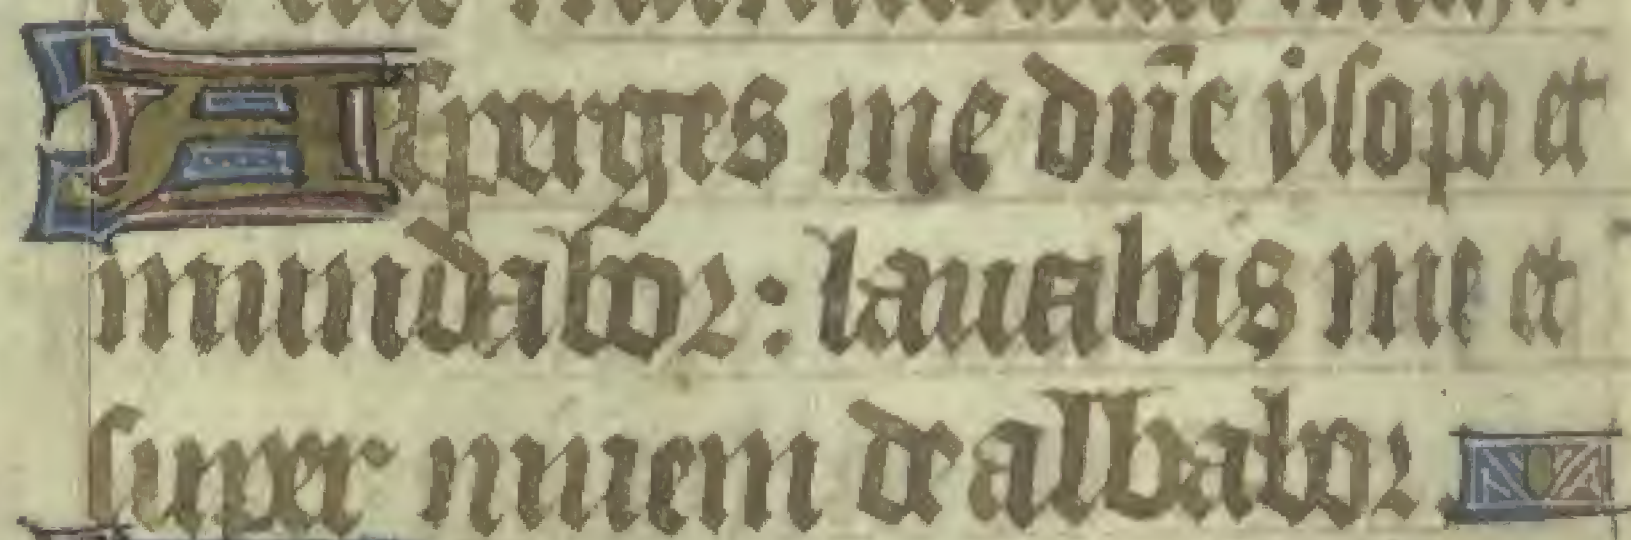 Asperges me dñe ẏsopo et
mundabor: lauabis me et
super niuem de albabor.